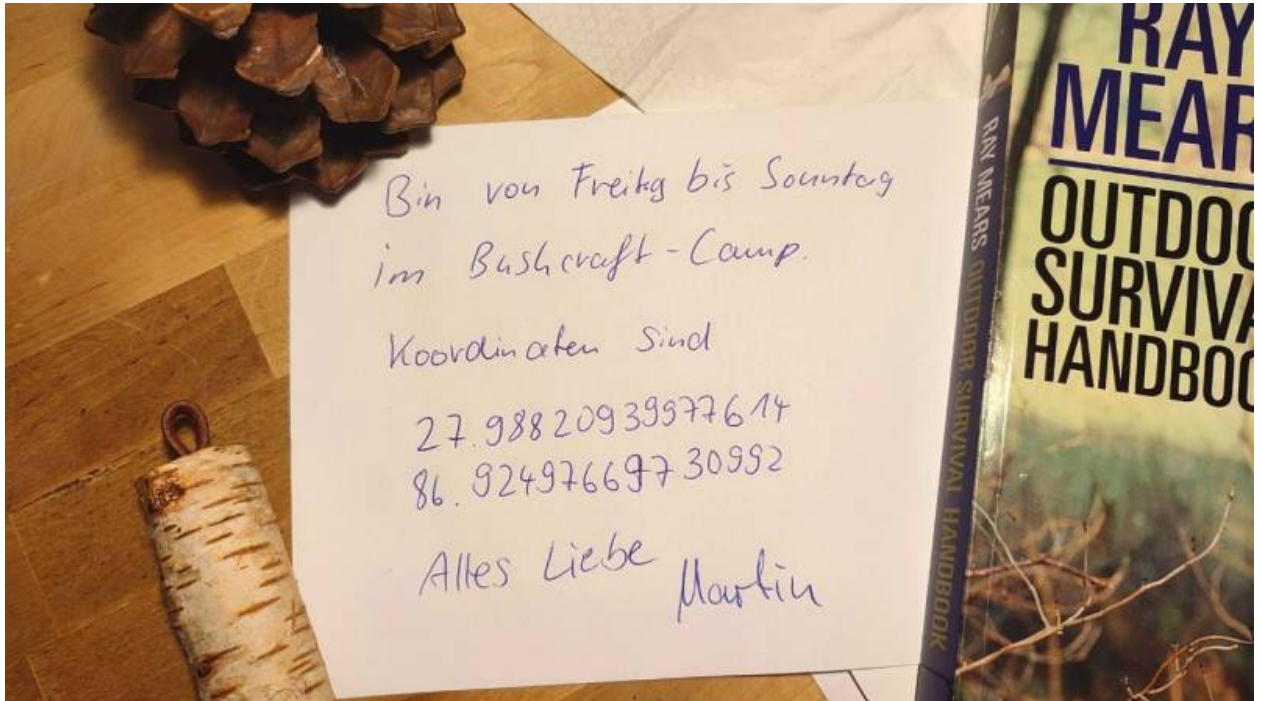 Bin von Freitag bis Sonntag
im Bushcraft-Camp.
Koordinaten sind
27.98820939977614
86.92497669730992
Alles Liebe
Martin
RAY MEARS OUTDOOR SURVIVAL HANDBOOK
RAY
MEAR
OUTDOO
SURVIVA
HANDBOO